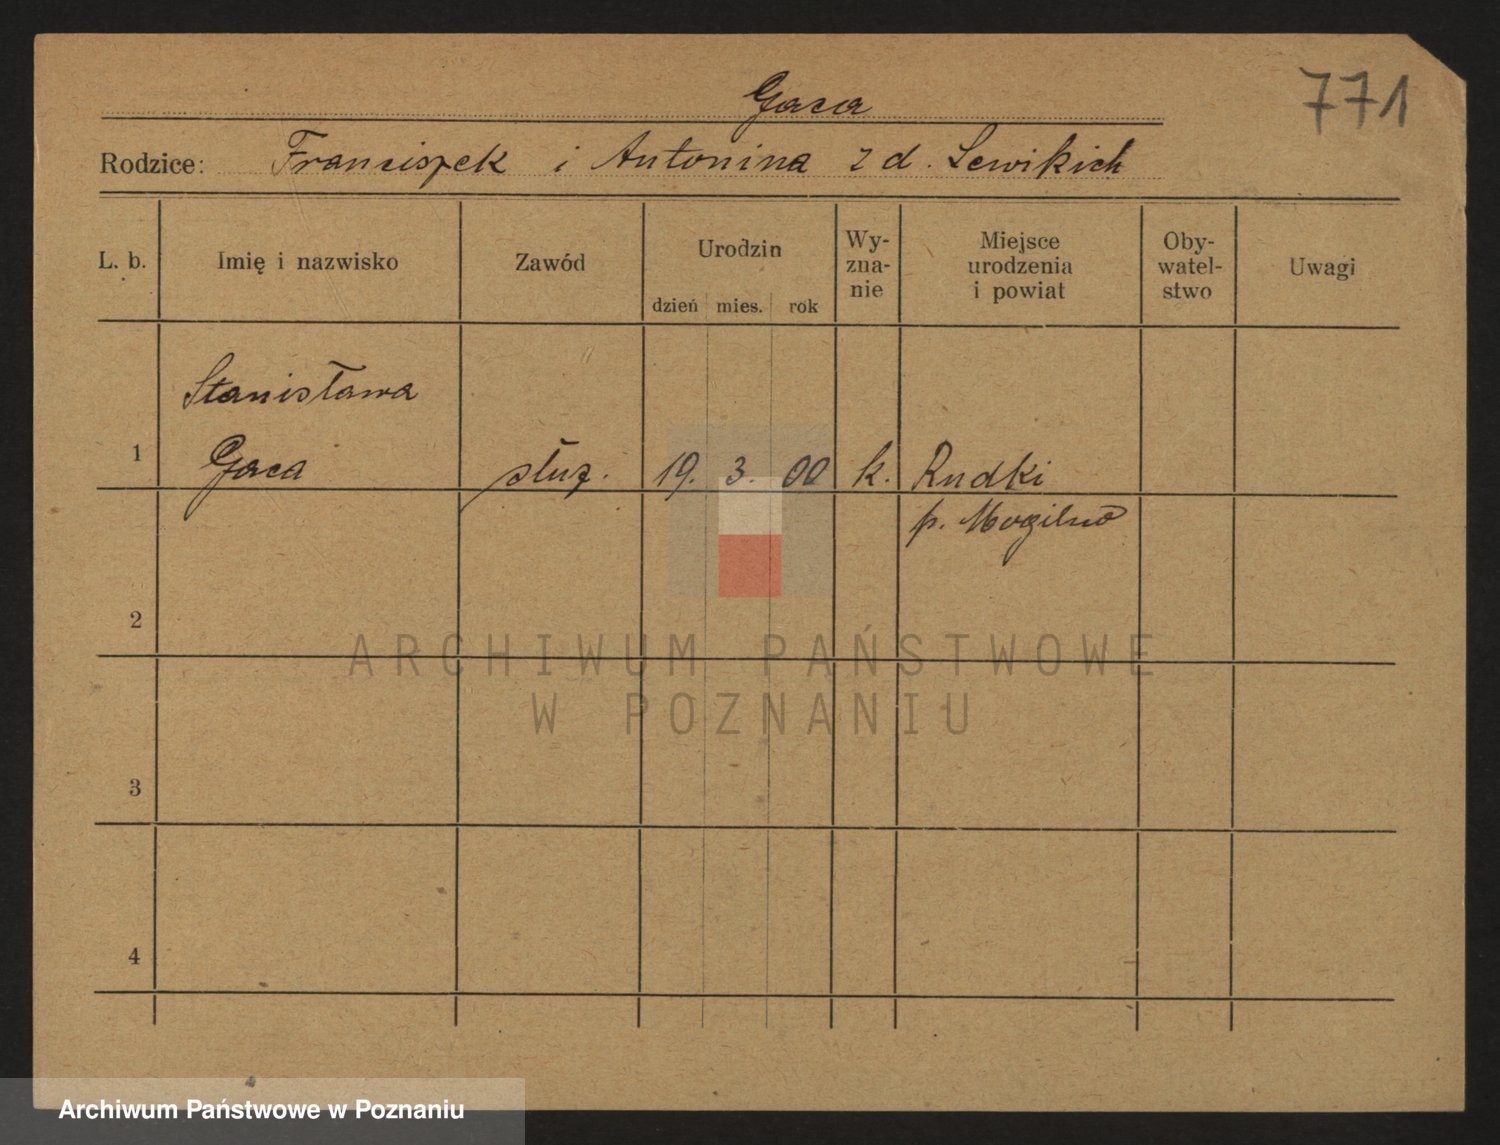 771
Gaca
Rodzice: Franciszek i Antonina z d. Lewikich
L. b. Imię i nazwisko Zawód Urodzin dzień mies. rok Wy-zna-nie Miejsce urodzenia i powiat Oby-watel-stwo Uwagi
Stanisława
1 Gaca służ. 19. 3. 00 k. Rudki
p. Mogilno
2
ARCHIWUM PAŃSTWOWE
W POZNANIU
3
4
Archiwum Państwowe w Poznaniu